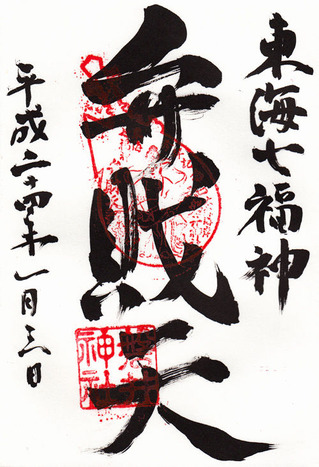 東海七福神
弁財天
平成二十四年一月三日
神社